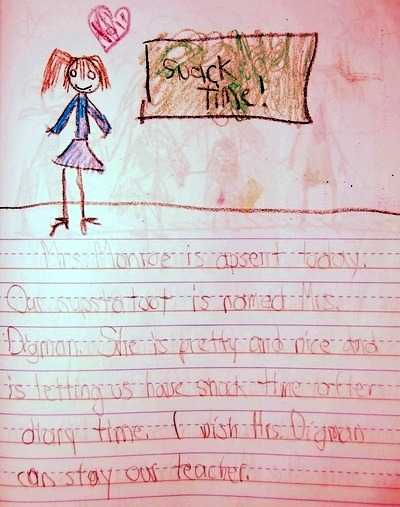 Snack
time!
Mrs. Monroe is apsent today.
Our supstatoot is named Mrs.
Digman. She is pretty and nice and
is letting us have snack time after
diary time. I wish Mrs. Digman
can stay our teacher.